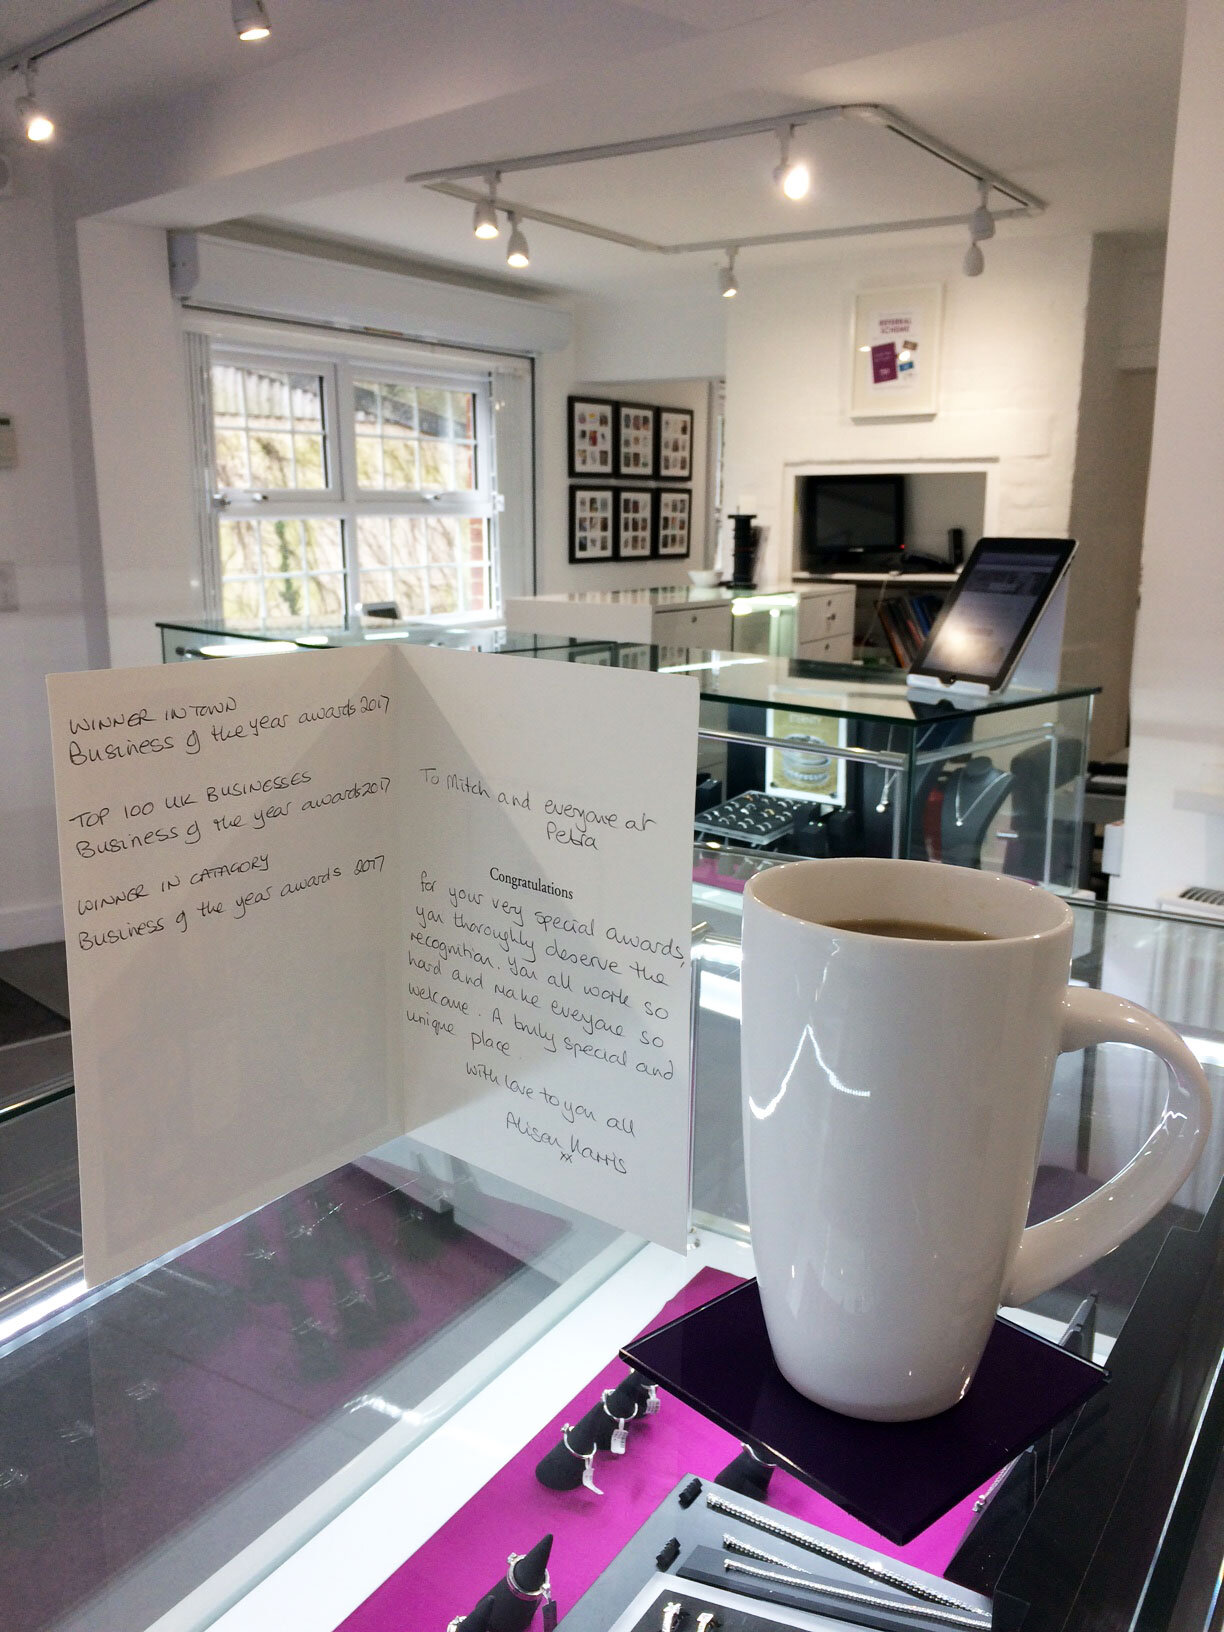 WINNER IN TOWN
Business of the year awards 2017
TOP 100 UK BUSINESSES
Business of the year awards 2017
WINNER IN CATAGORY
Business of the year awards 2017
To Mitch and everyone at
Petra
Congratulations
for your very special awards,
you thoroughly deserve the
recognition. You all work so
hard and make everyone so
welcome. A truly special and
unique place.
With love to you all
Alison Harris
xx
REFERRAL
SCHEME
ETERNITY